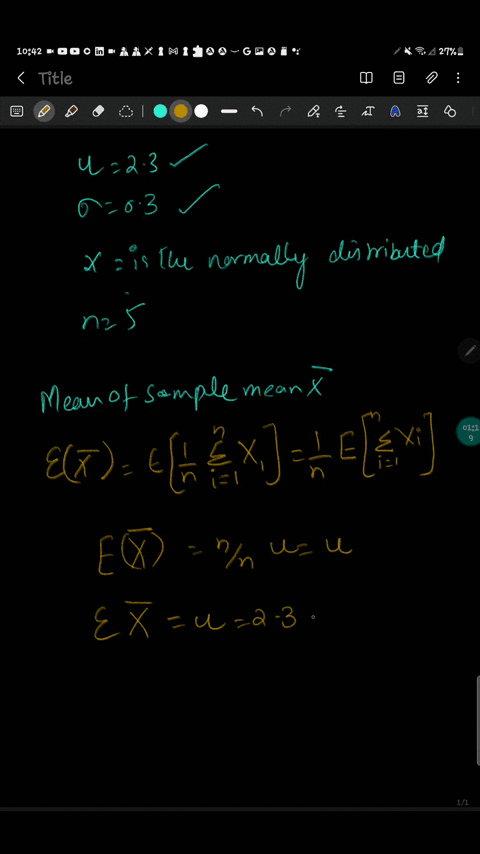 10:42
27%
Title
u = 2.3 ✓
σ = 0.3 ✓
x = is the normally distributed
n = 5
Mean of sample mean X̅
01:19
Ɛ(X̅) = Ɛ[1/n Σ i=1 n X₁] = 1/n E[Σ i=1 n Xi]
E(X̅) = n/n u = u
Ɛ X̅ = u = 2.3
1/1